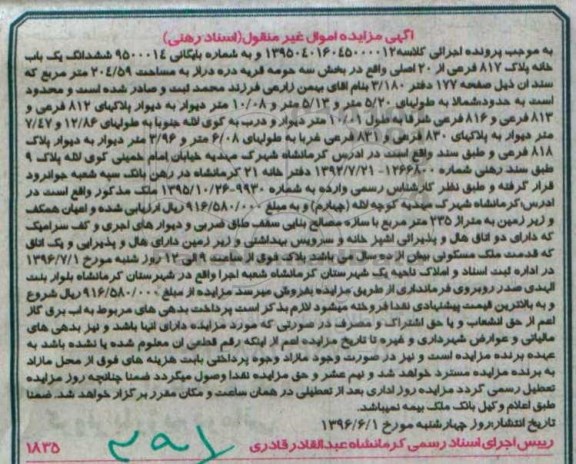 آگهی مزایده اموال غیر منقول(اسناد رهنی)
به موجب پرونده اجرائی کلاسه ۱۳۹۵۰۴۰۱۶۰۴۵۰۰۰۰۱۲ و به شماره بایگانی ۹۵۰۰۰۱۴ ششدانگ یک باب
خانه پلاک ۸۱۷ فرعی از ۲۰ اصلی واقع در بخش سه حومه قریه دره دراز به مساحت ۲۰۴/۵۹ متر مربع که
سند آن ذیل صفحه ۱۷۷ دفتر ۳/۱۸۰ بنام اقای بهمن زارعی فرزند محمد ثبت و صادر شده است و محدود
است به حدود:شمالا به طولهای ۵/۲۰ متر و ۵/۱۳ متر و ۱۰/۰۸ متر دیوار به دیوار پلاکهای ۸۱۲ فرعی و
۸۱۳ فرعی و ۸۱۶ فرعی شرقا به طول ۱۰/۰۱ متر دیوار و درب به کوی لاله جنوبا به طولهای ۱۲/۸۶ و ۷/۴۷
متر دیوار به پلاکهای ۸۳۰ فرعی و ۸۳۱ فرعی غربا به طولهای ۶/۰۸ متر و ۳/۹۶ متر دیوار به دیوار پلاک
۸۱۸ فرعی و طبق سند واقع است در ادرس کرمانشاه شهرک مهدیه خیابان امام خمینی کوی لاله پلاک ۹
طبق سند رهنی شماره ۱۲۶۶۸۰۰-۱۳۹۲/۷/۲۱ دفتر خانه ۲۱ کرمانشاه در رهن بانک سپه شعبه جوانرود
قرار گرفته و طبق نظر کارشناس رسمی وارده به شماره ۹۹۳۰-۱۳۹۵/۱۰/۲۶ ملک مذکور واقع است در
ادرس:کرمانشاه شهرک مهدیه کوچه لاله (چهارم) و به مبلغ ۹۱۶/۵۸۰/۰۰۰ ریال ارزیابی شده و اعیان همکف
و زیر زمین به متراژ ۲۳۵ متر مربع با سازه مصالح بنایی سقف طاق ضربی و دیوار های اجری و کف سرامیک
که دارای دو اتاق هال و پذیرائی اشپز خانه و سرویس بهداشتی و زیر زمین دارای هال و پذیرایی و یک اتاق
که قدمت ملک مسکونی بیش از ده سال می باشد پلاک فوق از ساعت ۹ الی ۱۲ روز شنبه مورخ ۱۳۹۶/۷/۱
در اداره ثبت اسناد و املاک ناحیه یک شهرستان کرمانشاه شعبه اجرا واقع در شهرستان کرمانشاه بلوار بنت
الهدی صدر روبروی فرمانداری از طریق مزایده بفروش میرسد مزایده از مبلغ ۹۱۶/۵۸۰/۰۰۰ ریال شروع
و به بالاترین قیمت پیشنهادی نقدا فروخته میشود لازم بذکر است پرداخت بدهی های مربوط به اب برق گاز
اعم از حق انشعاب و یا حق اشتراک و مصرف در صورتی که مورد مزایده دارای انها باشد و نیز بدهی های
مالیاتی و عوارض شهرداری و غیره تا تاریخ مزایده اعم از اینکه رقم قطعی ان معلوم شده یا نشده باشد به
عهده برنده مزایده است و نیز در صورت وجود مازاد وجوه پرداختی بابت هزینه های فوق از محل مازاد
به برنده مزایده مسترد خواهد شد و نیم عشر و حق مزایده نقدا وصول میگردد ضمنا چنانچه روز مزایده
تعطیل رسمی گردد مزایده روز اداری بعد از تعطیلی در همان ساعت و مکان مقرر برگزار خواهد شد. ضمنا
طبق اعلام وکیل بانک ملک بیمه نمیباشد.
تاریخ انتشار:روز چهارشنبه مورخ ۱۳۹۶/۶/۱
رییس اجرای اسناد رسمی کرمانشاه عبدالقادر قادری
۱۸۳۵